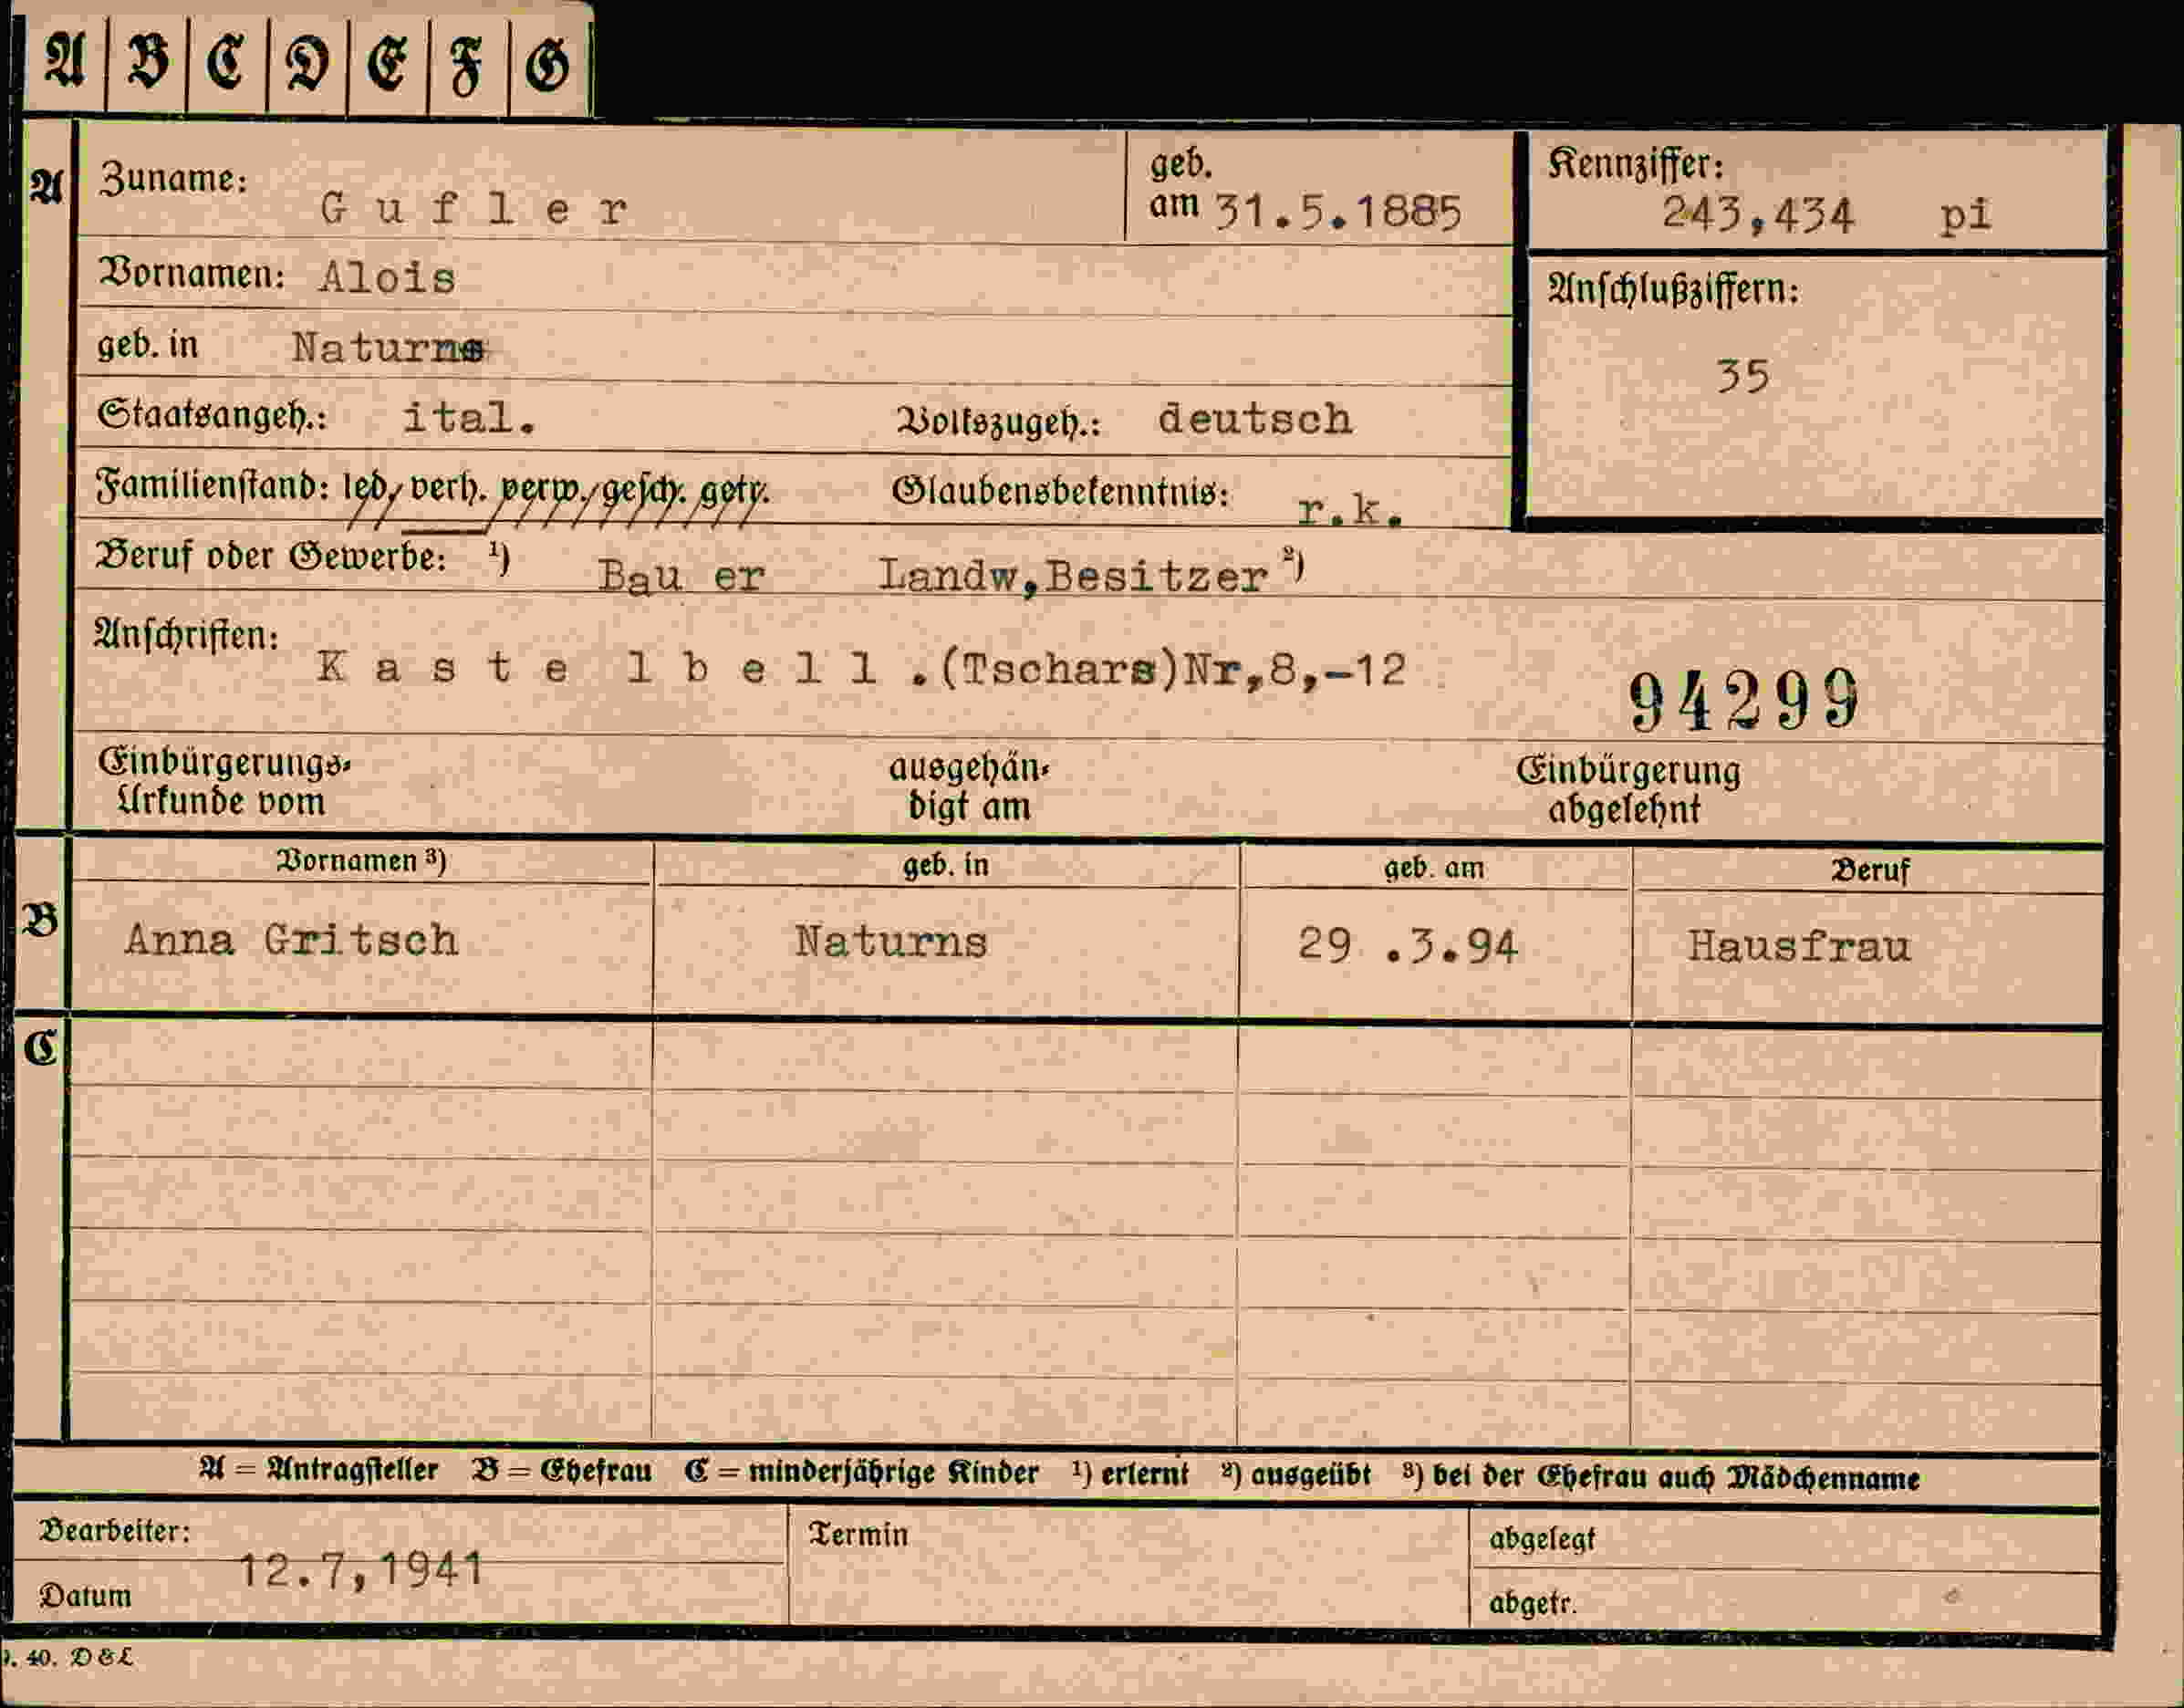 A B C D E F G
A Zuname: Gufler geb. am 31.5.1885 Kennziffer: 243,434 pi
Vornamen: Alois Anschlußziffern:
geb. in Naturns 35
Staatsangeh.: ital. Volkszugeh.: deutsch
Familienstand: led. verh. verw. gesch. getr. Glaubensbekenntnis: r.k.
Beruf oder Gewerbe: ¹) Bau er Landw,Besitzer ²)
Anschriften: K a s t e l b e l l .(Tschars)Nr,8,-12 94299
Einbürgerungs- ausgehän- Einbürgerung
Urkunde vom digt am abgelehnt
Vornamen ³) geb. in geb. am Beruf
B Anna Gritsch Naturns 29 .3.94 Hausfrau
C
A = Antragsteller B = Ehefrau C = minderjährige Kinder ¹) erlernt ²) ausgeübt ³) bei der Ehefrau auch Mädchenname
Bearbeiter: Termin abgelegt
12.7,1941
Datum abgetr.
40. D & L